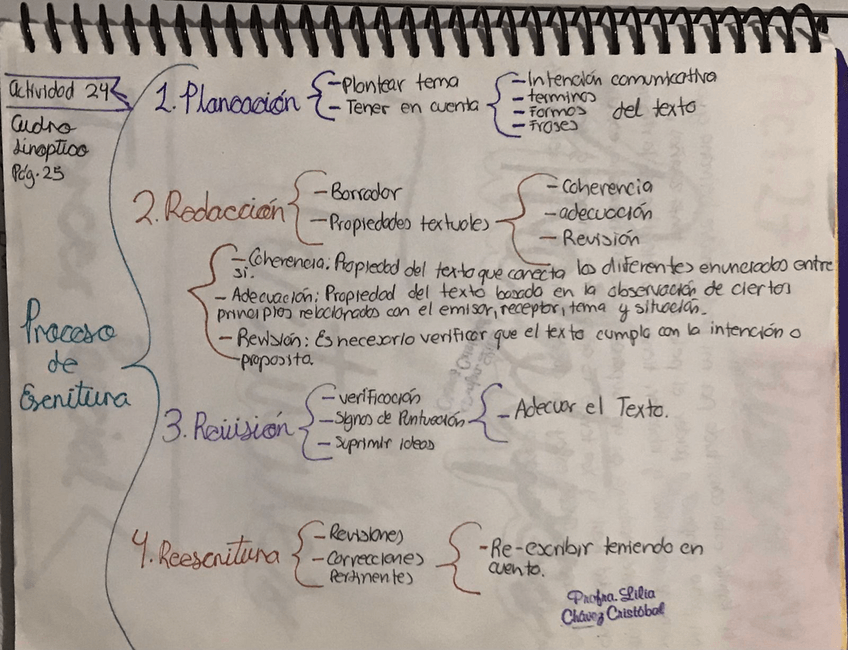 Actividad 24
Cuadro
sinoptico
Pág. 25
Proceso
de
Escritura
1. Planeación
- Plantear tema
- Tener en cuenta
- Intención comunicativa
- terminos
- Formas del texto
- Frases
2. Redacción
- Borrador
- Propiedades textuales
- Coherencia
- adecuación
- Revisión
- Coherencia: Propiedad del texto que conecta los diferentes enunciados entre
si.
- Adecuación: Propiedad del texto basado en la observación de ciertos
principios relacionados con el emisor, receptor, tema y situación.
- Revisión: Es necesario verificar que el texto cumpla con la intención o
proposito.
3. Revisión
- verificación
- Signos de Puntuación
- Suprimir ideas
- Adecuar el Texto.
4. Reescritura
- Revisiones
- Correcciones
Pertinentes
- Re-escribir teniendo en
cuenta.
Profra. Lilia
Chávez Cristóbal